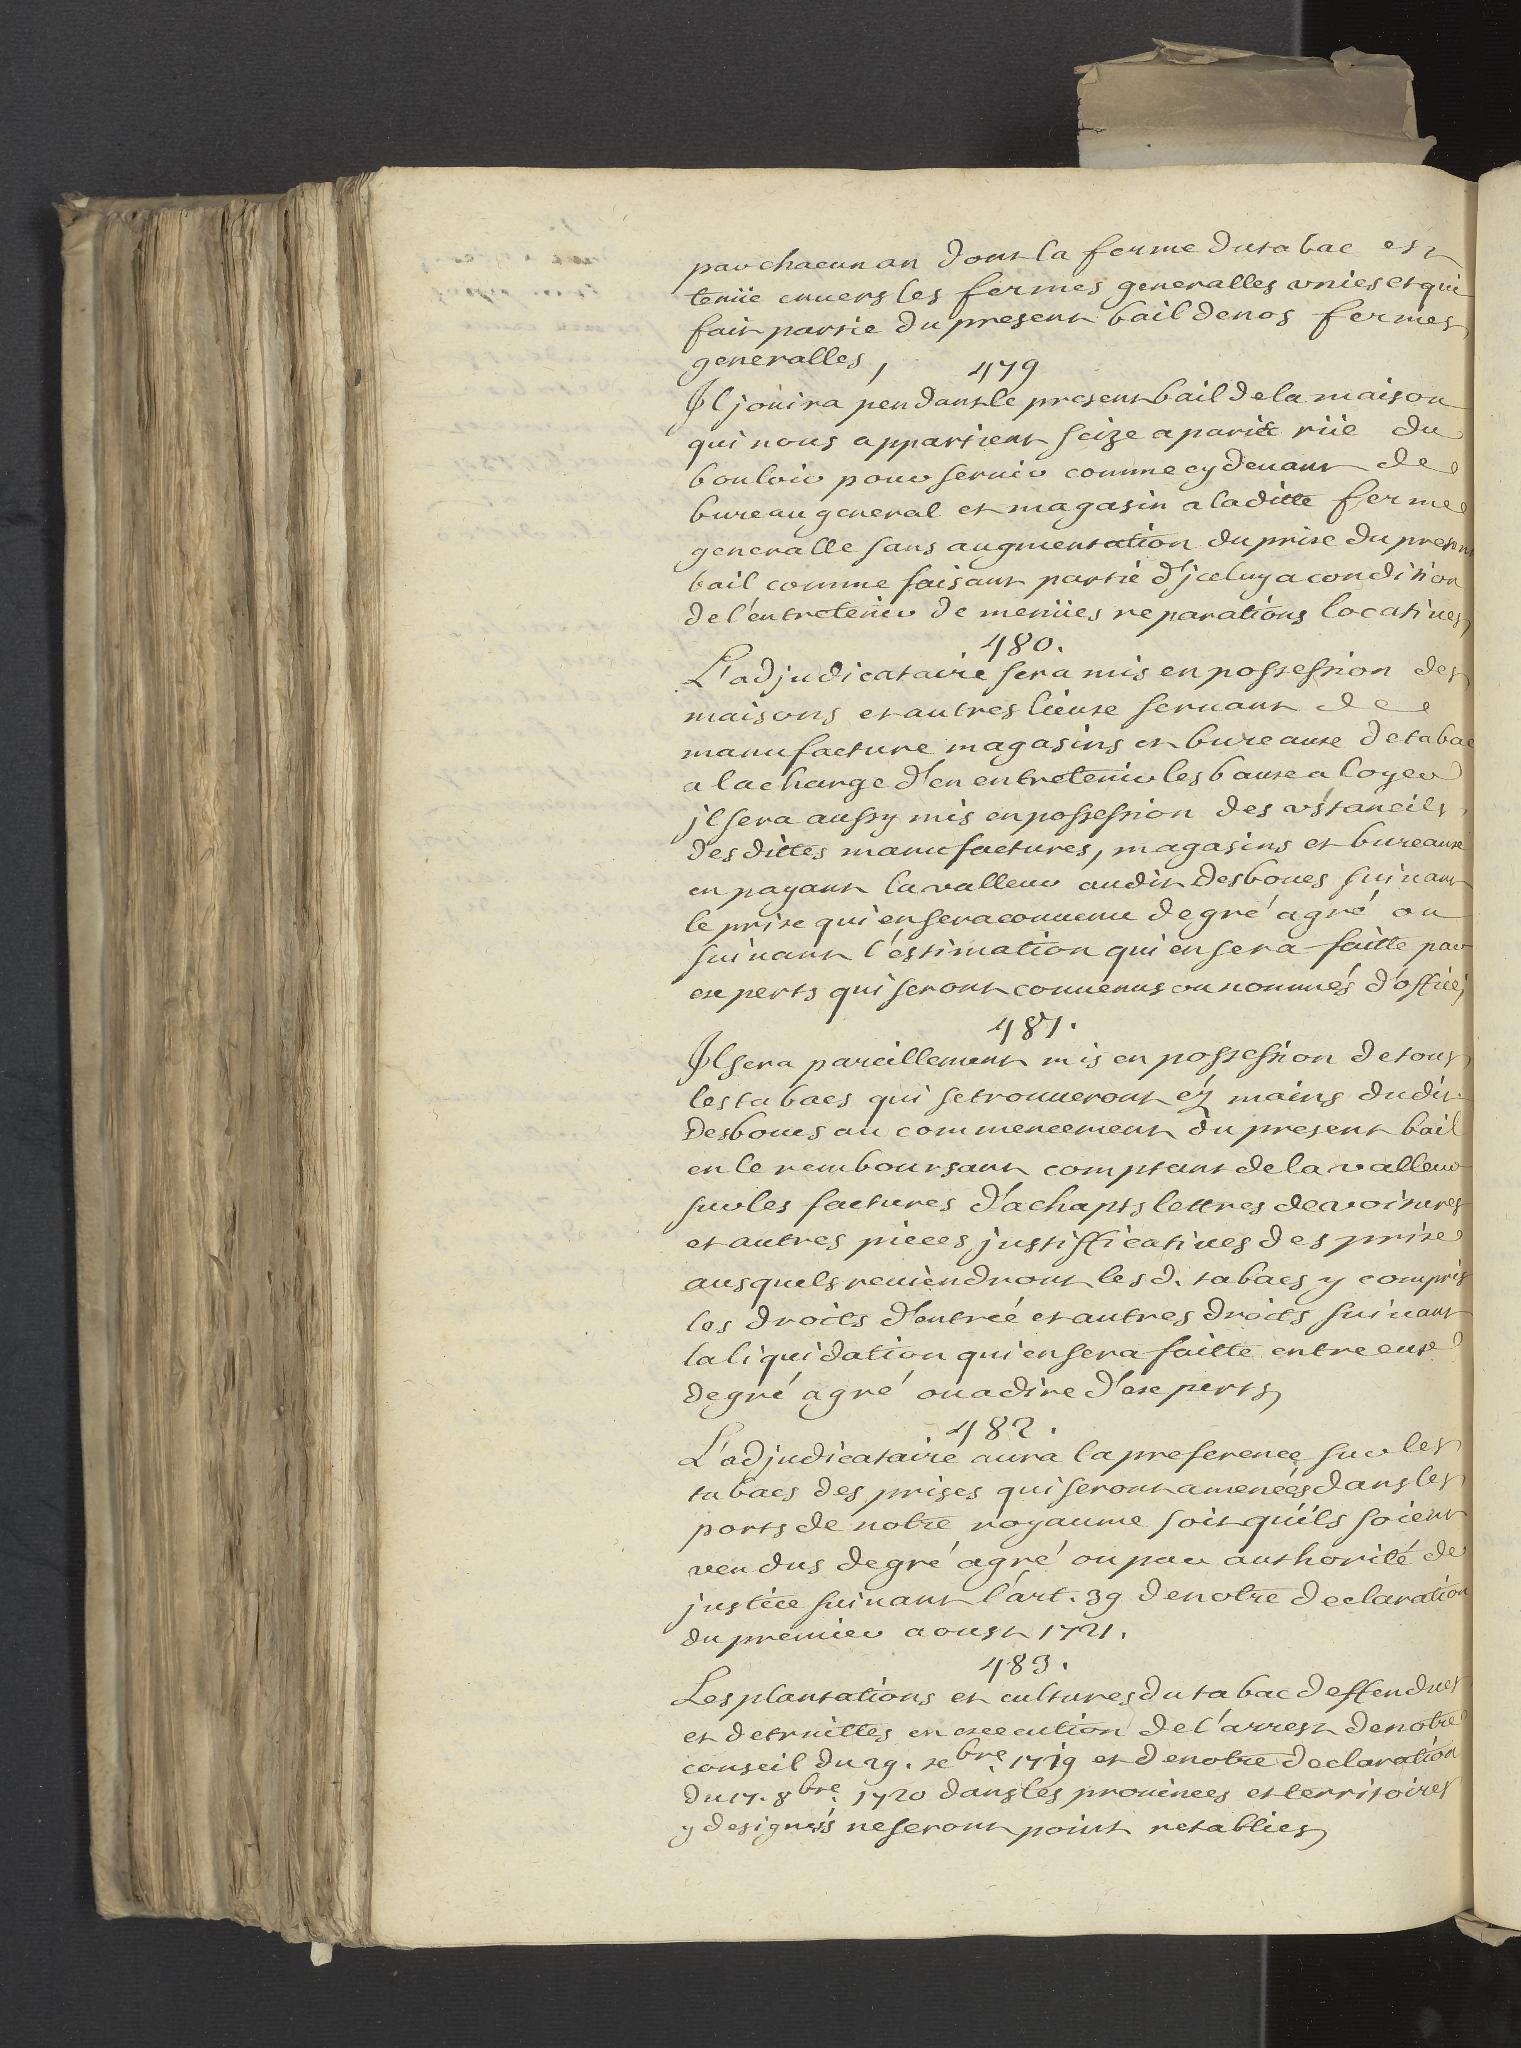 par chacun an dont la ferme du tabac est
tenüe enuers les fermes generalles vnies et qui
fait partie du present bail de nos fermes
generalles,
479
Il joüira pendant le present bail de la maison
qui nous appartient seize a paris rüe du
bouloir pour seruir comme cy deuant de
bureau general et magasin a la ditte ferme
generalle sans augmentation du prix du present
bail comme faisant partie d'jceluy a condition
de l'entretenir de menües reparations locatiues
480.
L'adjudicataire sera mis en possession des
maisons et autres lieux seruant de
manufacture magasins et bureaux de tabac
a la charge d'en entretenir les baux a loyer
jl sera aussy mis en possession des vstancils
des dittes manufactures, magasins et bureaux
en payant la valleur audit Desboues suiuant
le prix qui en sera conuenu de gré a gré ou
suiuant l'éstimation qui en sera faitte par
experts qui seront conuenus ou nommés d'office,
481.
Il sera pareillement mis en possession de tous
les tabacs qui se trouueront éz mains dudit
Desboues au commencement du present bail
en le remboursant comptant de la valleur
sur les factures d'achapts lettres de voitures
et autres pieces justifficatiues des prix
ausquels reuiendront les d. tabacs y compris
les droits d'entrée et autres droits suiuant
la liquidation qui en sera faitte entre eux
de gré a gré ou a dire d'experts
482.
L'adjudicataire aura la preference sur les
tabacs des prises qui seront amenées dans les
ports de notre royaume soit qu'ils soient
vendus de gré a gré ou par authorité de
justice suiuant l'art. 39 de notre declaration
du premier aoust 1721.
483.
Les plantations et cultures du tabac deffendues
et detruittes en execution de l'arrest de notre
conseil du 29. xbre. 1719 et de notre declaration
du 17. 8bre. 1720 dans les prouinces et territoires
y designés ne seront point retablies